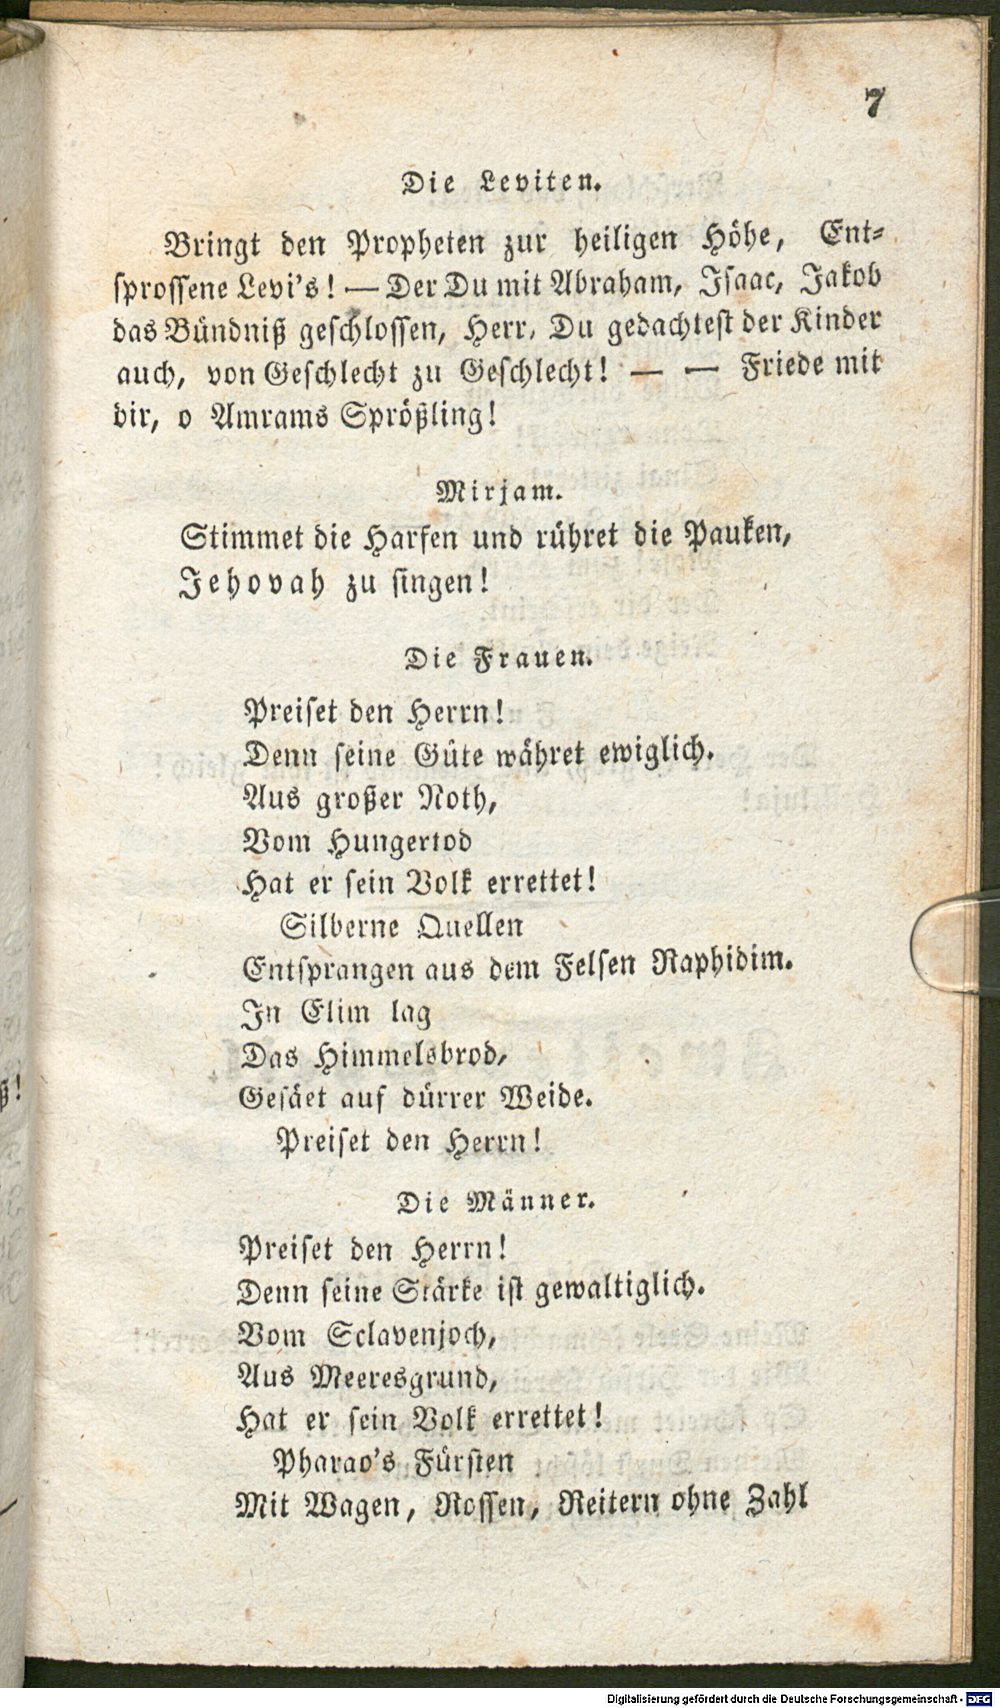 7
Die Leviten.
Bringt den Propheten zur heiligen Höhe, Ent-
sprossene Levi's! — Der Du mit Abraham, Isaac, Jakob
das Bündniß geschlossen, Herr, Du gedachtest der Kinder
auch, von Geschlecht zu Geschlecht! — — Friede mit
dir, o Amrams Sprößling!
Mirjam.
Stimmet die Harfen und rühret die Pauken,
Jehovah zu singen!
Die Frauen.
Preiset den Herrn!
Denn seine Güte währet ewiglich.
Aus großer Noth,
Vom Hungertod
Hat er sein Volk errettet!
Silberne Quellen
Entsprangen aus dem Felsen Raphidim.
In Elim lag
Das Himmelsbrod,
Gesäet auf dürrer Weide.
Preiset den Herrn!
Die Männer.
Preiset den Herrn!
Denn seine Stärke ist gewaltiglich.
Vom Sclavenjoch,
Aus Meeresgrund,
Hat er sein Volk errettet!
Pharao's Fürsten
Mit Wagen, Rossen, Reitern ohne Zahl
Digitalisierung gefördert durch die Deutsche Forschungsgemeinschaft - DFG